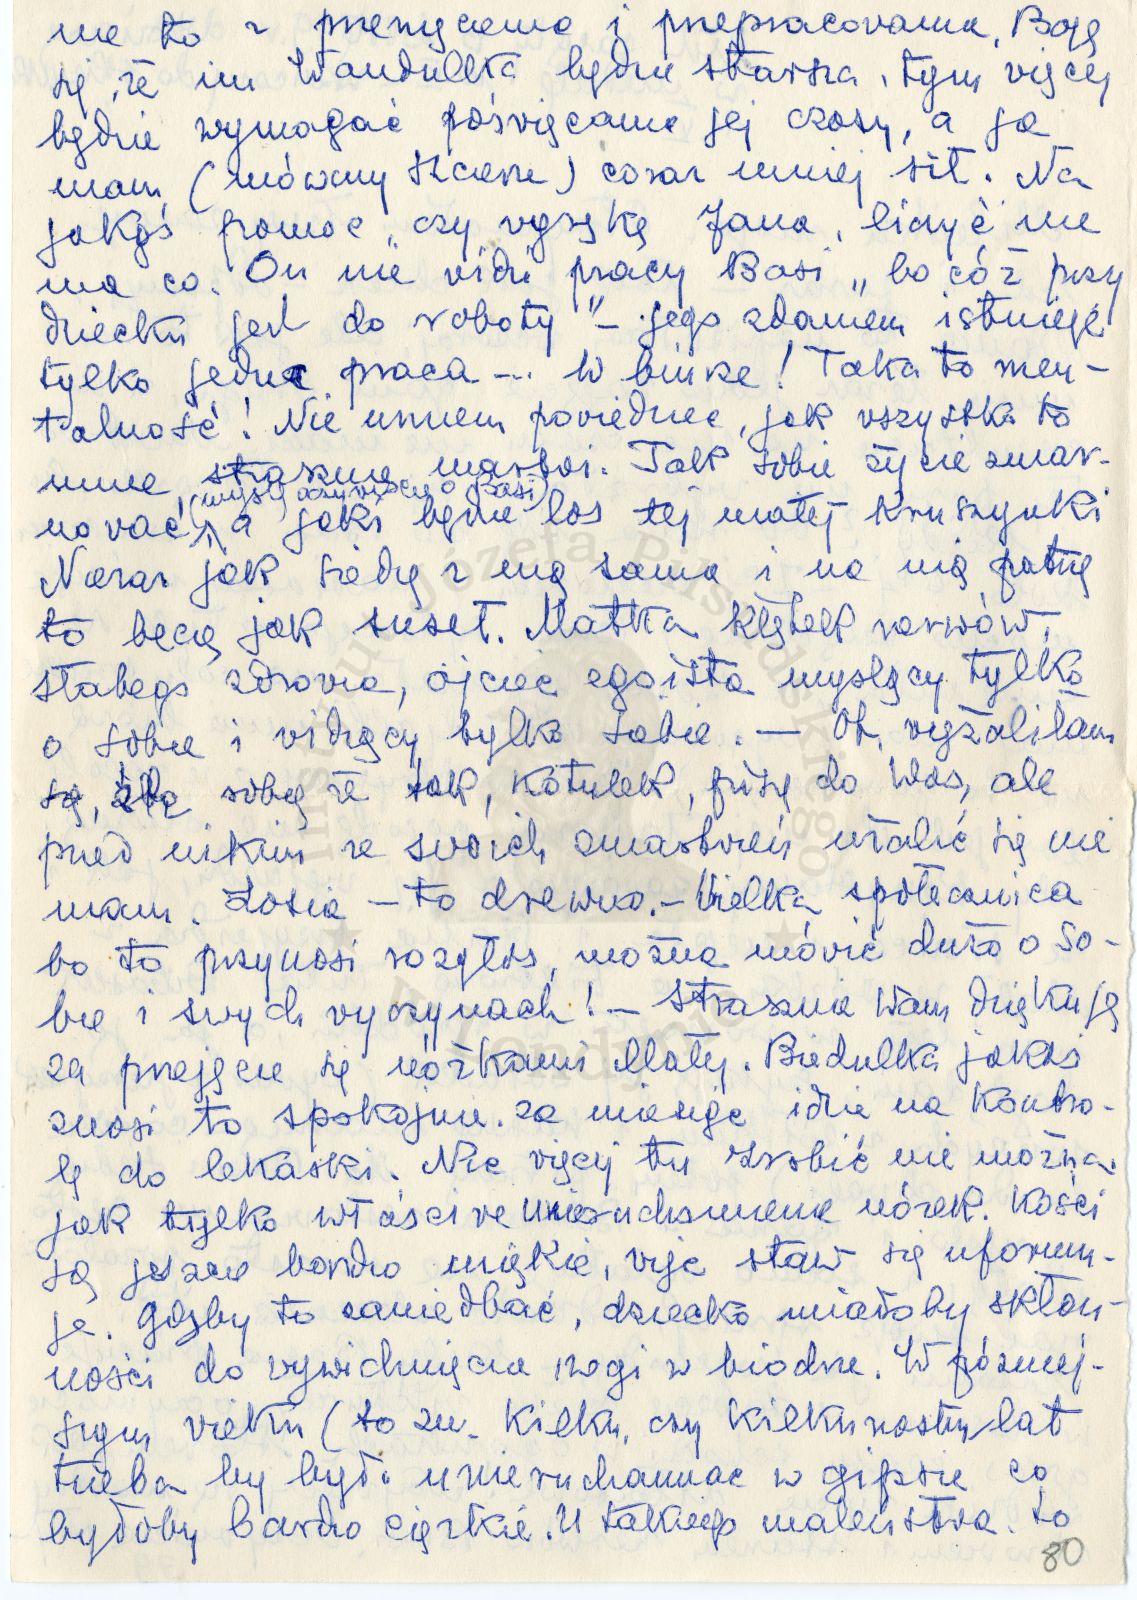 nie to z przemęczenia i przepracowania. Boję
się, że im Wandulka będzie starsza, tym więcej
będzie wymagać poświęcania jej czasu, a ja
mam (mówmy szczerze) coraz mniej sił. Na
jakąś pomoc, czy wyrękę Jana, liczyć nie
ma co. On nie widzi pracy Basi „bo cóż przy
dziecku jest do roboty" – jego zdaniem istnieje
tylko jedna praca --- w biurze! Taka to men-
talność! Nie umiem powiedzieć, jak wszystko to
mnie strasznie martwi. Tak sobie życie zmar-
nować (myślę oczywiście o Basi), a jaki będzie los tej małej kruszynki
Nieraz jak siedzę z nią sama i na nią patrzę
to beczę jak suseł. Matka kłębek nerwów,
słabego zdrowia, ojciec egoista myślący tylko
o sobie i widzący tylko siebie. – Ot, wyżaliłam
się, sobą że tak, Kotulek, piszę do Was, ale
przed nikim ze swoich zmartwień użalić się nie
mam. Zosia – to drewno. – Wielka społecznica
bo to przynosi rozgłos, można mówić dużo o so-
bie i swych wyczynach! – Strasznie Wam dziękuję
za przejęcie się nóżkami Małej. Biedulka jakoś
znosi to spokojnie. za miesiąc idzie na kontro-
lę do lekarki. Nic więcej tu zrobić nie można,
jak tylko właściwe unieruchomienie nóżek. Kości
są jeszcze bardzo miękkie, więc staw się uformu-
je. Gdyby to zaniedbać, dziecko miałoby skłon-
ności do zwichnięcia nogi w biodrze. W później-
szym wieku (to zn. kilku, czy kilkunastu lat
trzeba by było unieruchamiać w gipsie co
byłoby bardzo ciężkie. U takiego maleństwa to
80
Instytut Józefa Piłsudskiego
w Londynie